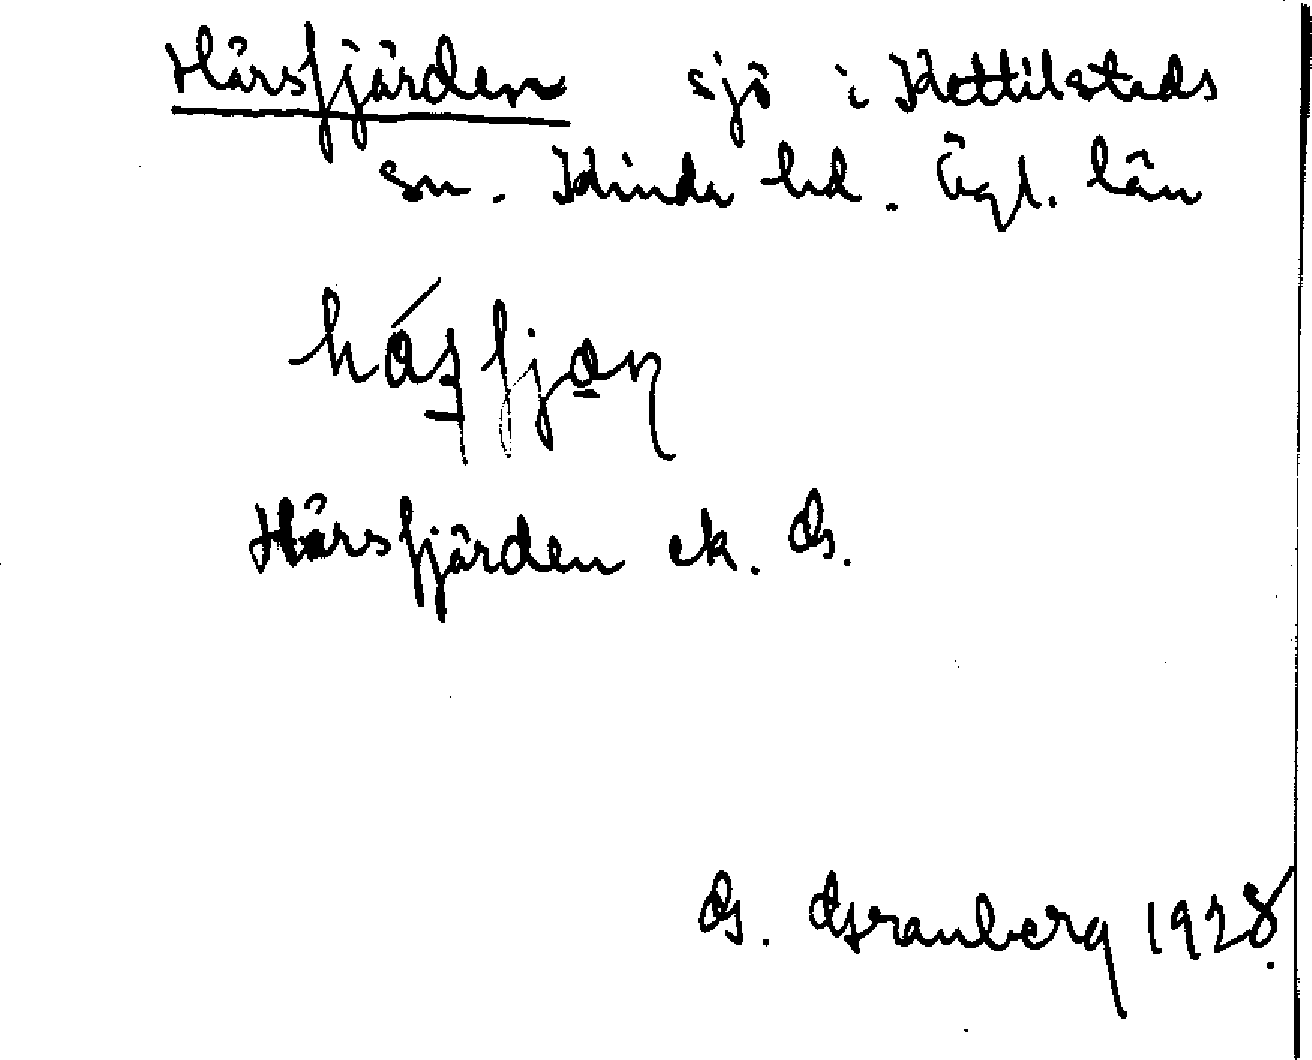 Hårsfjärden sjö i Kättilstads
sn. Kinda hd. Ögl. län
Hårsfjärden ek. G.
G. Granberg 1928.